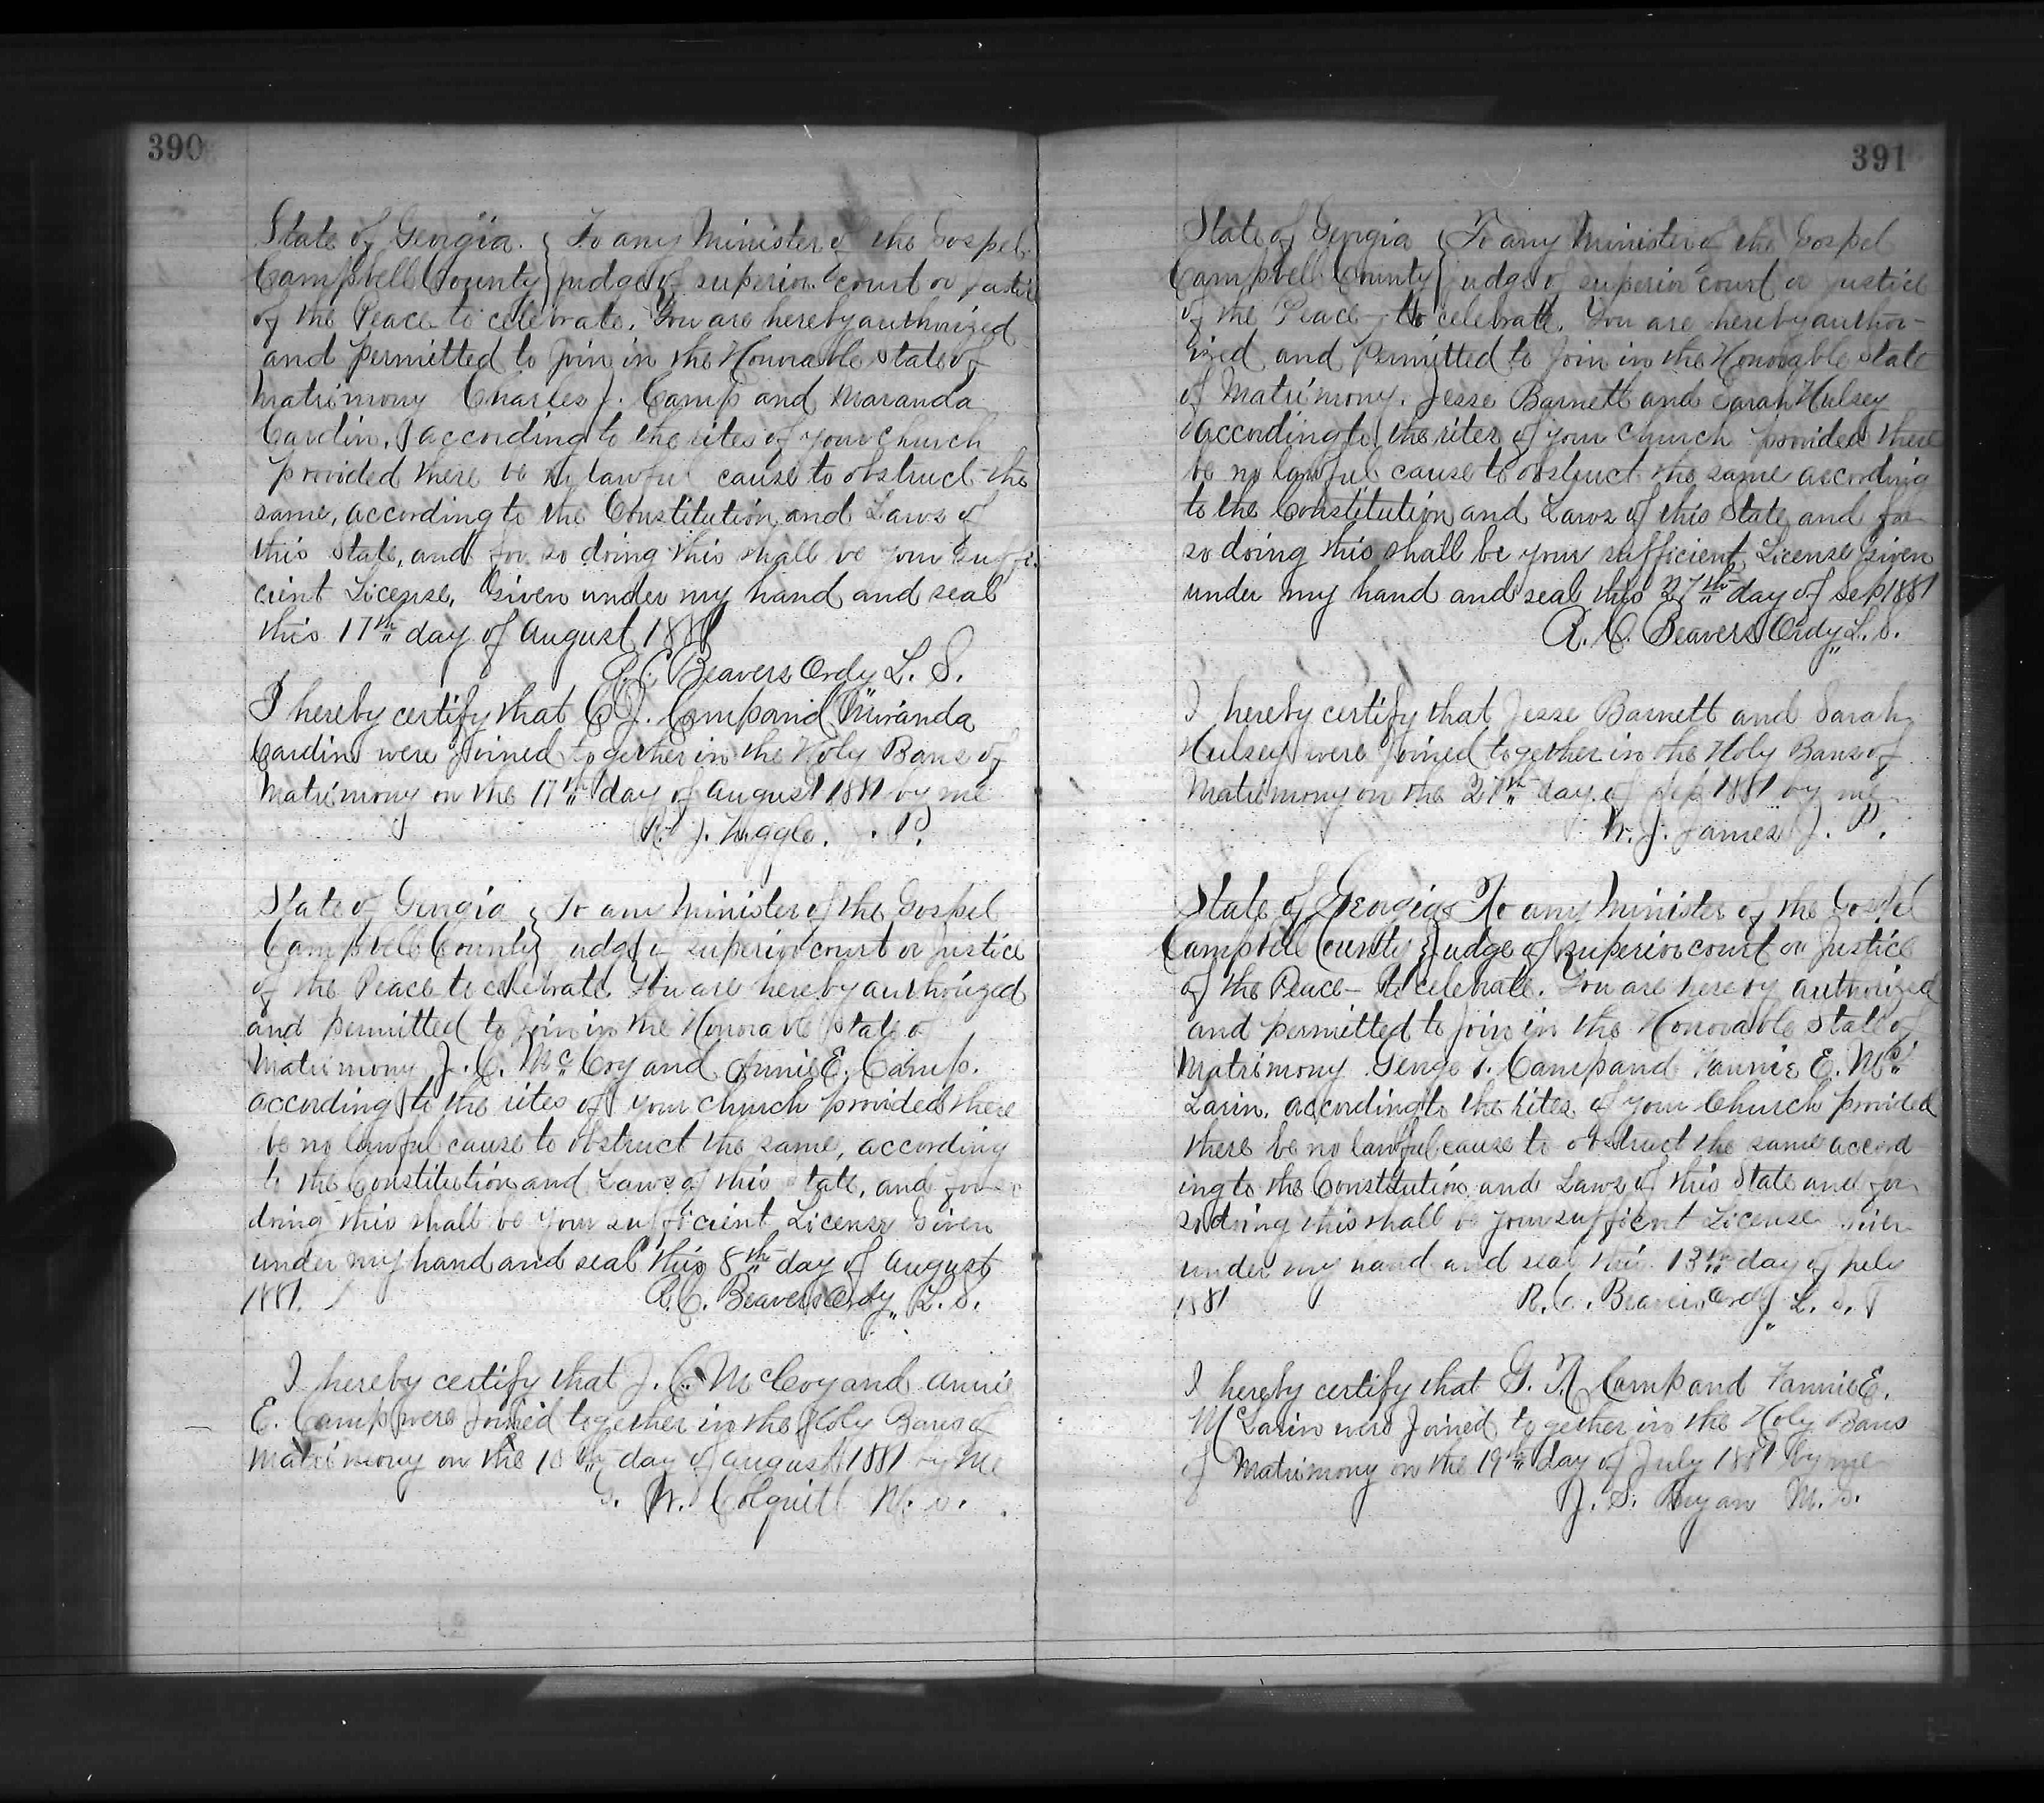 390
State of Georgia. } To any Minister of the Gospel
Campbell County } Judge of superior court or Justice
of the Peace to celebrate. You are hereby authorized
and permitted to Join in the Honorable State of
Matrimony Charles J. Camp and Maranda
Cardin, according to the rites of your church
provided there be no lawful cause to obstruct the
same, according to the Constitution and Laws of
this State, and for so doing this shall be your suffi-
cient License, Given under my hand and seal
this 17th day of August 1881
R. C. Beavers Ordy L. S.
I hereby certify that C. J. Camp and Miranda
Cardin were Joined together in the Holy Bans of
Matrimony on the 17th day of August 1881 by me
J. P.
State of Georgia } To any Minister of the Gospel
Campbell County } Judge of superior court or Justice
of the Peace to celebrate You are hereby authorized
and permitted to Join in the Honorable State of
Matrimony J. C. McCoy and Annie E. Camp.
according to the rites of your church provided there
be no lawful cause to obstruct the same, according
to the Constitution and Laws of this State, and for so
doing this shall be your sufficient License Given
under my hand and seal this 8th day of August
1881. R. C. Beavers Ordy L. S.
I hereby certify that J. C. McCoy and Annie
E. Camp were Joined together in the Holy Bans of
Matrimony on the 10th day of August 1881 by Me
W. Colquitt M. G.
391
State of Georgia } To any Minister of the Gospel
Campbell County } Judge of superior court or Justice
of the Peace - to celebrate. You are hereby author-
ized and Permitted to Join in the Honorable State
of Matrimony. Jesse Barnett and Sarah Hulsey
according to the rites of your church provided there
be no lawful cause to obstruct the same according
to the Constitution and Laws of this State and for
so doing this shall be your sufficient License Given
under my hand and seal this 27th day of Sep 1881
R. C. Beavers Ordy L. S.
I hereby certify that Jesse Barnett and Sarah
Hulsey were Joined together in the Holy Bans of
Matrimony on the 27th day of Sep 1881 by me
W. J. James J. P.
State of Georgia } To any Minister of the Gospel
Campbell County } Judge of superior court or Justice
of the Peace - to celebrate. You are hereby authorized
and permitted to Join in the Honorable State of
Matrimony George T. Camp and Fannie E. Mc
Larin. according to the rites of your Church provided
there be no lawful cause to obstruct the same accord
ing to the Constitution and Laws of this State and for
so doing this shall be your sufficient License Given
under my hand and seal this 13th day of July
1881 R. C. Beavers Ordy L. S.
I hereby certify that G. T. Camp and Fannie E.
McLarin were Joined together in the Holy Bans
of Matrimony on the 19th day of July 1881 by me
J. S. Bryan M. G.